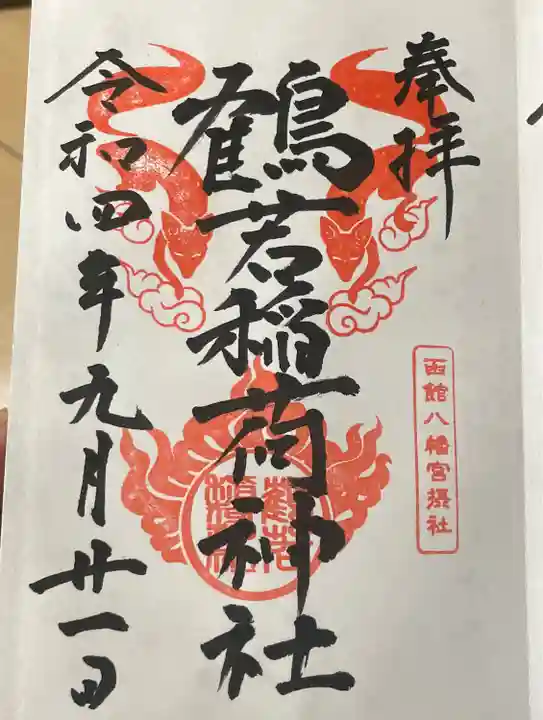 奉拝
函館八幡宮摂社
鶴若稲荷神社
令和四年九月廿一日